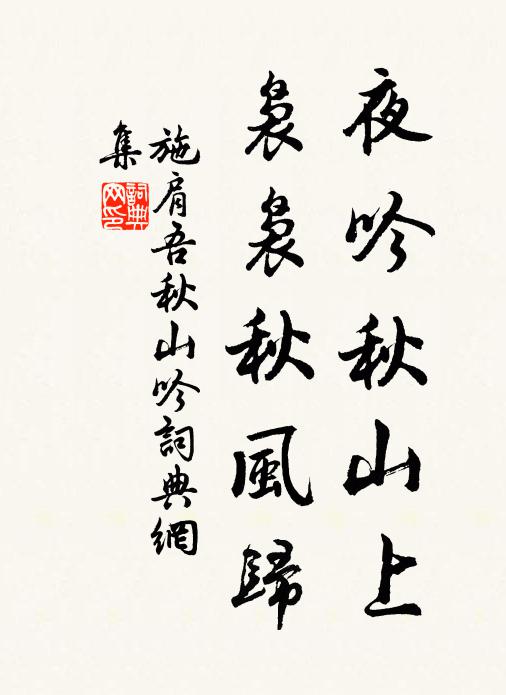 夜吟秋山上
袅袅秋風歸
施肩吾秋山吟詞典網
集
詞典网印